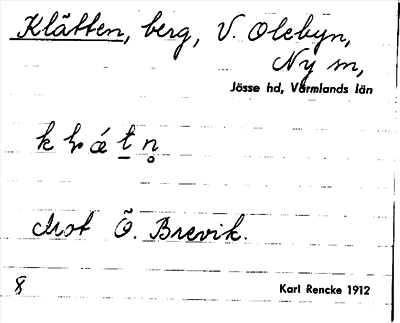 Klätten, berg, V. Olebyn,
Ny sn,
Jösse hd, Värmlands län
Mot Ö. Brevik.
8 Karl Rencke 1912